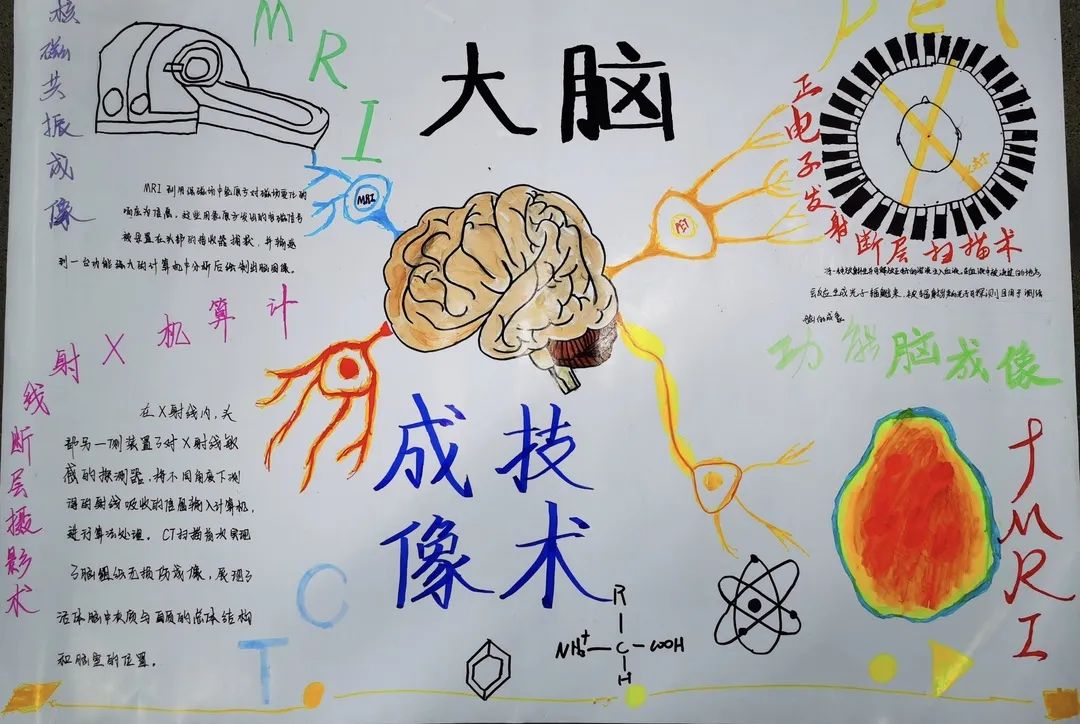 核磁共振成像
MRI
大脑
PET
正电子发射
断层扫描术
MRI
PET
MRI利用强磁场中氢原子对磁场变化的
响应为信息，这些用氢原子发出的电磁信号
被安置在头部的接收器捕获，并输送
到一台功能强大的计算机中分析后绘制出脑图像。
将一种放射性
计算机X射
线断层摄影术
功能脑成像
在X射线内，头
部另一侧装置了对X射线敏
感的探测器，将不同角度下测
得的射线吸收的信息输入计算机，
进行算法处理。CT扫描首次实现
了脑组织无损伤成像，展现了
活体脑中灰质与白质的总体结构
和脑室的位置。
CT
成像技术
fMRI
R
NH₃⁺—C—COOH
H